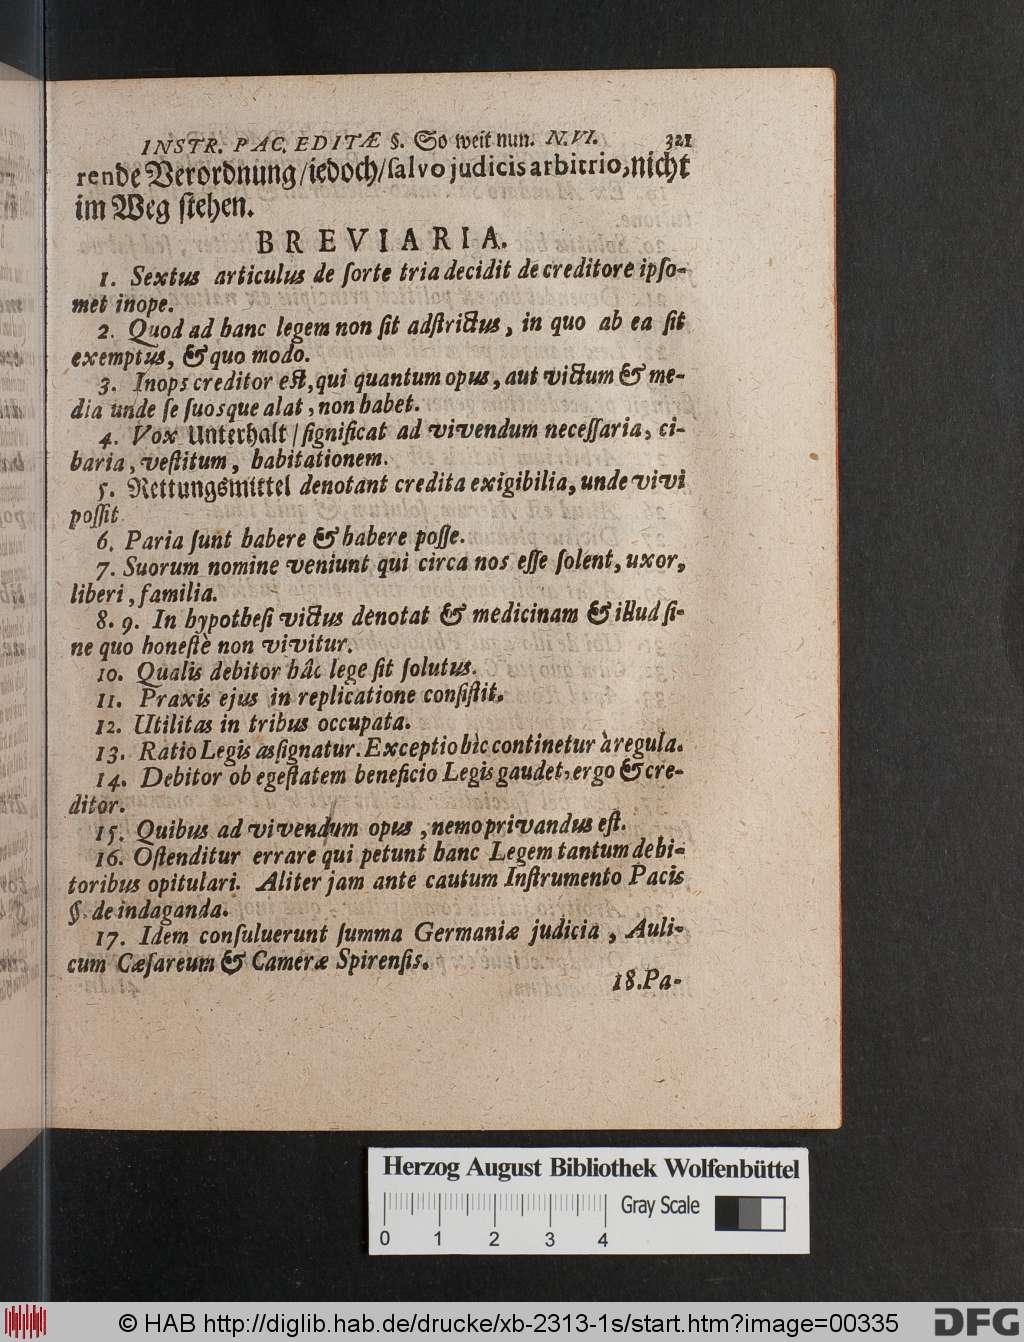 INSTR. PAC. EDITÆ §. So weit nun. N.VI. 321
rende Verordnung/iedoch/salvo judicis arbitrio, nicht
im Weg stehen.
BREVIARIA.
1. Sextus articulus de sorte tria decidit de creditore ipso-
met inope.
2. Quod ad hanc legem non sit adstrictus, in quo ab ea sit
exemptus, & quo modo.
3. Inops creditor est, qui quantum opus, aut victum & me-
dia unde se suosque alat, non habet.
4. Vox Unterhalt/significat ad vivendum necessaria, ci-
baria, vestitum, habitationem.
5. Rettungsmittel denotant credita exigibilia, unde vivi
possit
6. Paria sunt habere & habere posse.
7. Suorum nomine veniunt qui circa nos esse solent, uxor,
liberi, familia.
8. 9. In hypothesi victus denotat & medicinam & illud si-
ne quo honestè non vivitur.
10. Qualis debitor hâc lege sit solutus.
11. Praxis ejus in replicatione consistit.
12. Utilitas in tribus occupata.
13. Ratio Legis assignatur. Exceptio hìc continetur à regula.
14. Debitor ob egestatem beneficio Legis gaudet, ergo & cre-
ditor.
15. Quibus ad vivendum opus, nemo privandus est.
16. Ostenditur errare qui petunt hanc Legem tantum debi-
toribus opitulari. Aliter jam ante cautum Instrumento Pacis
§. de indaganda.
17. Idem consuluerunt summa Germaniæ judicia, Auli-
cum Cæsareum & Cameræ Spirensis.
18. Pa-
Herzog August Bibliothek Wolfenbüttel
Gray Scale
0 1 2 3 4
© HAB http://diglib.hab.de/drucke/xb-2313-1s/start.htm?image=00335
DFG